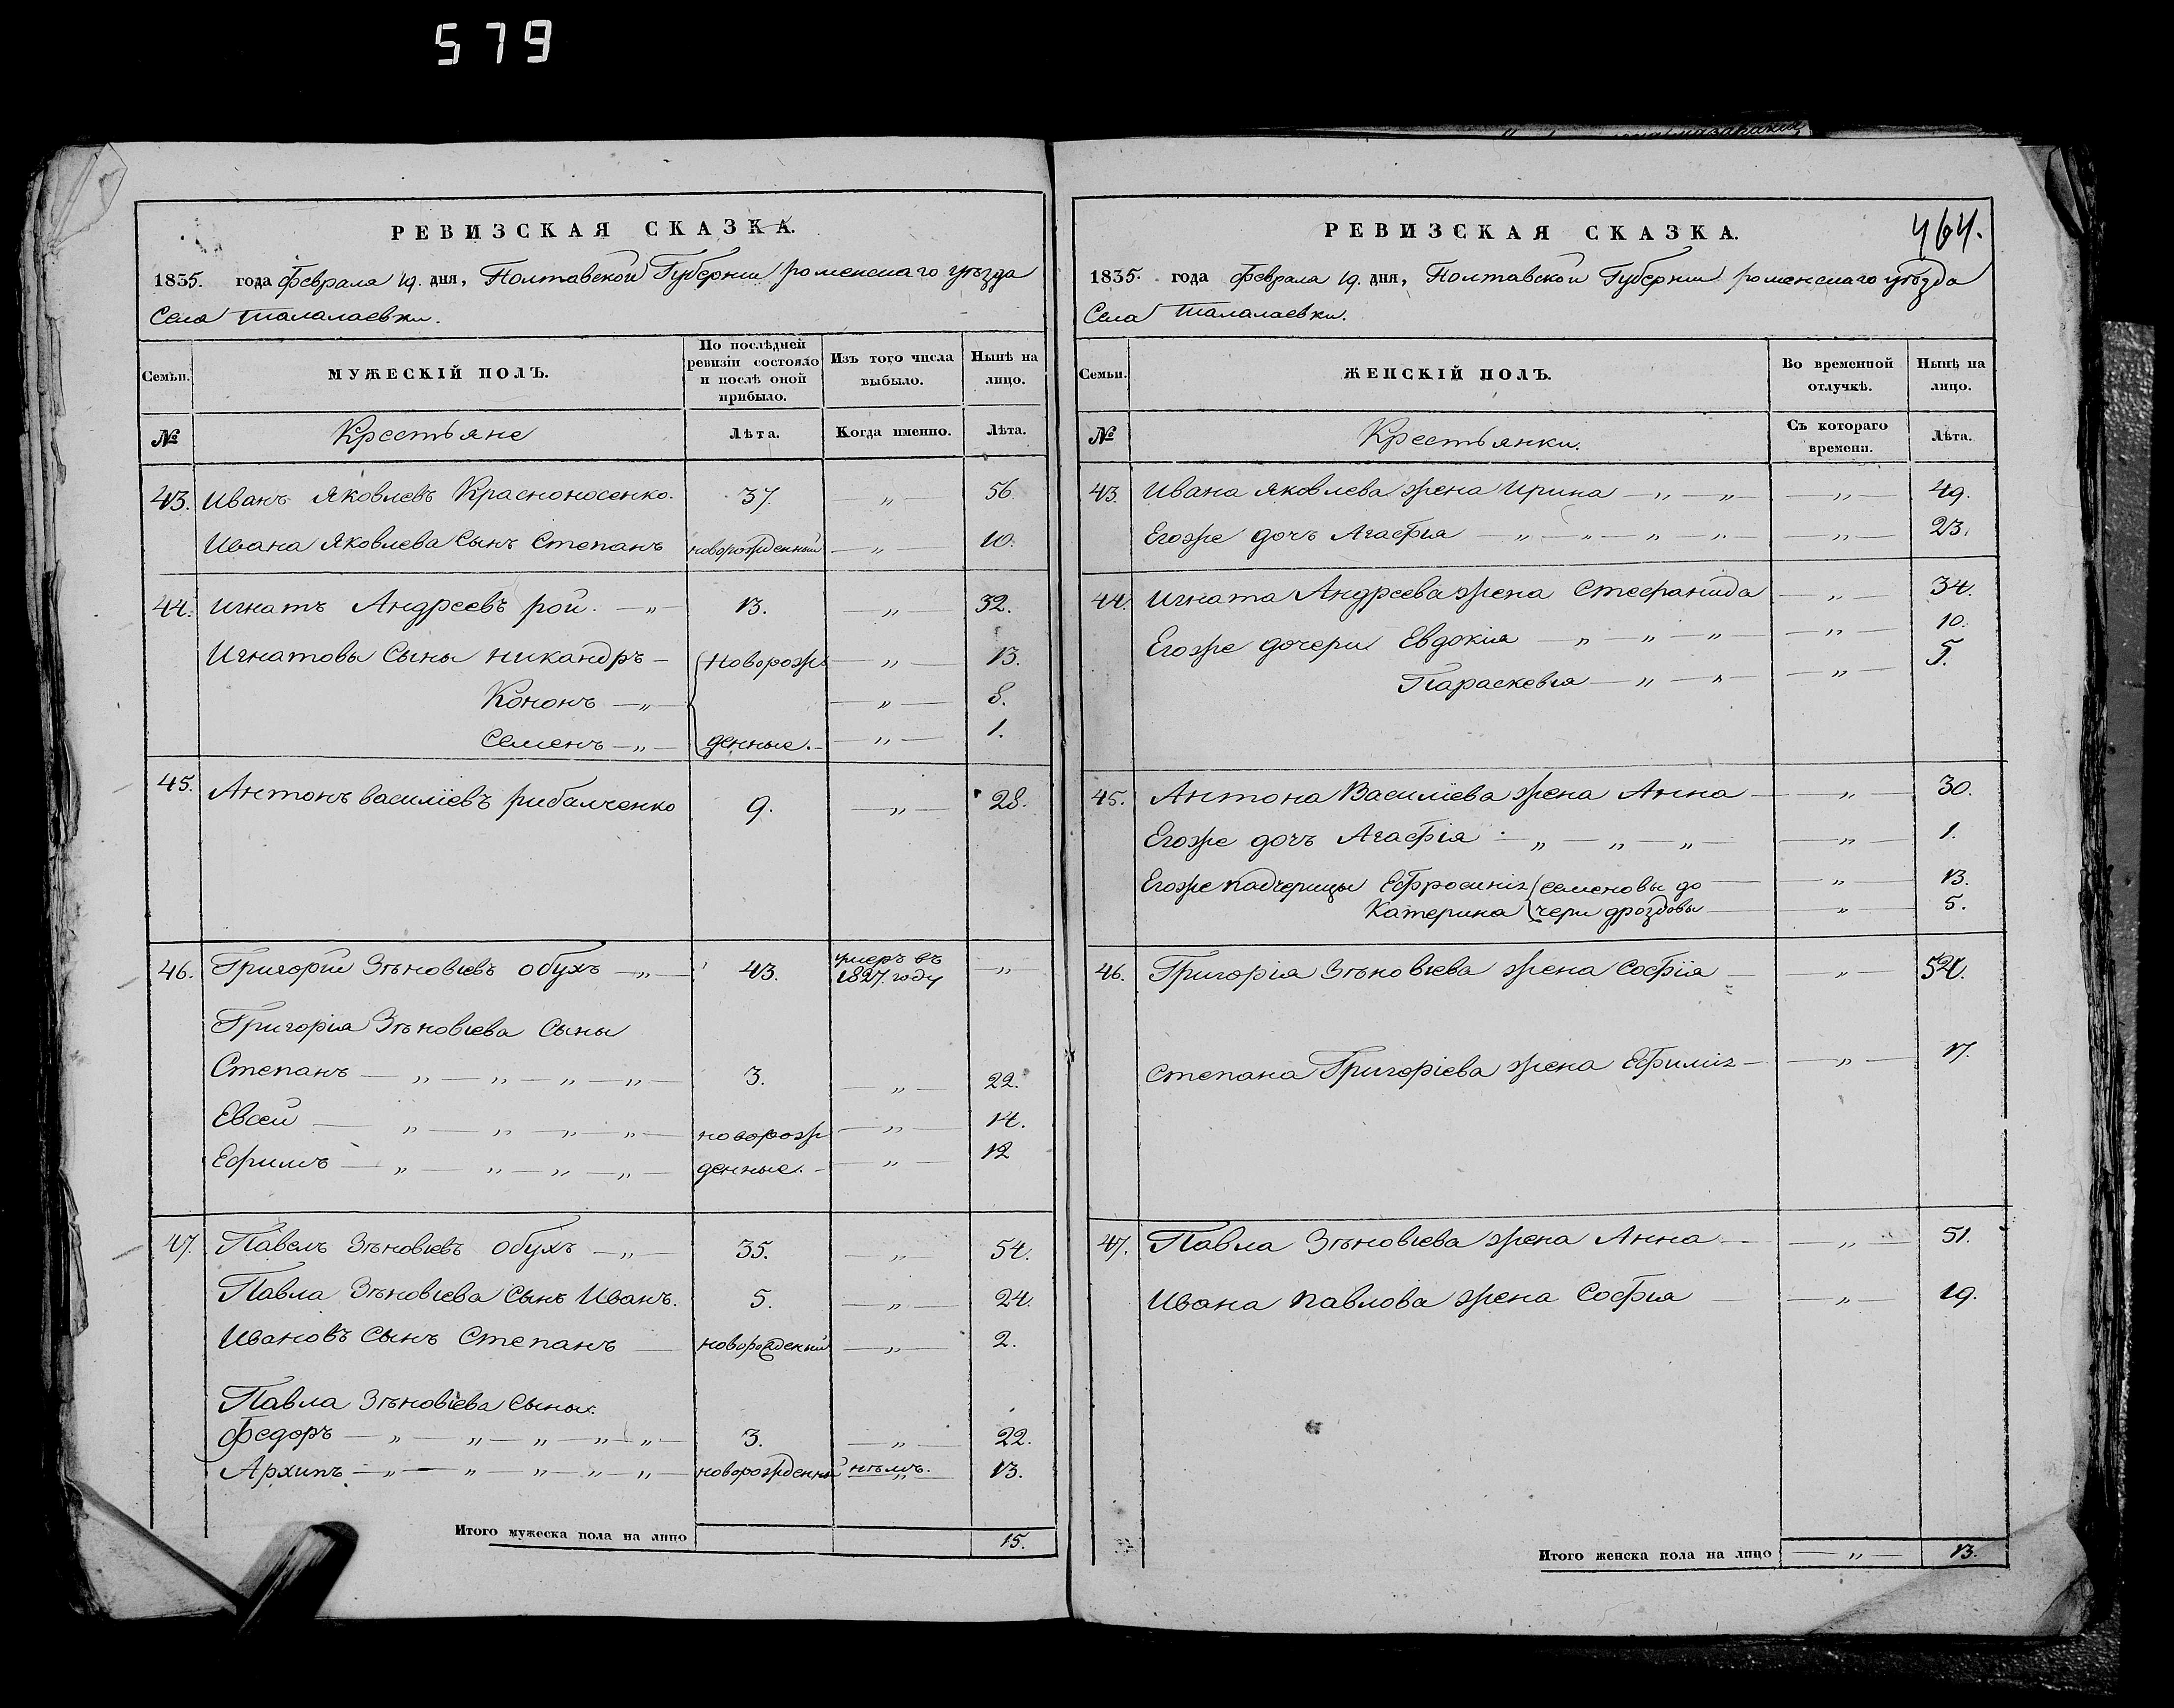 579
РЕВИЗСКАЯ СКАЗКА.
1835. года Февраля 19. дня, Полтавской Губернии роменскаго уѣзда
Села талалаевки.
Семьи. МУЖЕСКІЙ ПОЛЪ. По послѣдней ревизіи состояло и послѣ оной прибыло. Изъ того числа выбыло. Нынѣ на лицо.
№ Крестьяне Лѣта. Когда именно. Лѣта.
43. Иванъ Яковлевъ Красноносенко. 37. „ 56.
Ивана Яковлева Сынъ Степанъ новорожденный — „ — 10.
44. Игнатъ Андреевъ рой. — „ — 13. — „ — 32.
Игнатовы Сыны никандръ — новорож — „ — 13.
Кононъ — „ — — „ — 8.
Семенъ — „ — денные. — — „ — 1.
45. Антонъ василіевъ рибалченко 9. — „ — 28.
46. Григорій Зѣновіевъ обухъ — „ — 43. умеръ въ 1827. году — „
Григорія Зѣновіева Сыны
Степанъ — „ — „ — „ — „ — 3. „ — 22.
Евсей — „ — „ — „ — „ — новорож — „ — 14.
Ефимъ — „ — „ — „ — „ — денные. — — „ — 12
47. Павелъ Зѣновіевъ обухъ — „ — 35. — „ — 54.
Павла Зѣновіева Сынъ Иванъ. 5. — „ — 24.
Ивановъ Сынъ Степанъ — новорожденый — „ — 2.
Павла Зѣновіева Сыны.
Федоръ — „ — „ — „ — „ — „ — 3. — „ — 22.
Архипъ — „ — „ — „ — „ — „ — новорожденный нѣмъ. „ 13.
Итого мужеска пола на лицо 15.
РЕВИЗСКАЯ СКАЗКА. 464.
1835. года Февраля 19. дня, Полтавской Губернии роменскаго уѣзда
Села талалаевки.
Семьи. ЖЕНСКІЙ ПОЛЪ. Во временной отлучкѣ. Нынѣ на лицо.
№ Крестьянки. Съ котораго времени. Лѣта.
43. Ивана Яковлева жена Ирина — „ — „ — — „ — 49.
Егоже дочъ Агафія — „ — „ — „ — „ — — „ — 23.
44. Игната Андреева жена Стефанида — „ — 34.
Егоже дочери Евдокія — „ — „ — „ — „ — 10.
Параскевія — „ — „ — — „ — 5.
45. Антона Василіева жена Анна — — „ — 30.
Егоже дочъ Агафія — „ — „ — „ — — „ — 1.
Егоже падчерицы Ефросинія семеновы до — — „ — 13.
Катерина чери дроздовы — „ — 5.
46. Григорія Зѣновіева жена Софія — — „ — 54.
Степана Григоріева жена Ефимія — — „ — 17.
47. Павла Зѣновіева жена Анна — — „ — 51.
Ивана павлова жена Софія — „ — 19.
Итого женска пола на лицо — „ — 13.